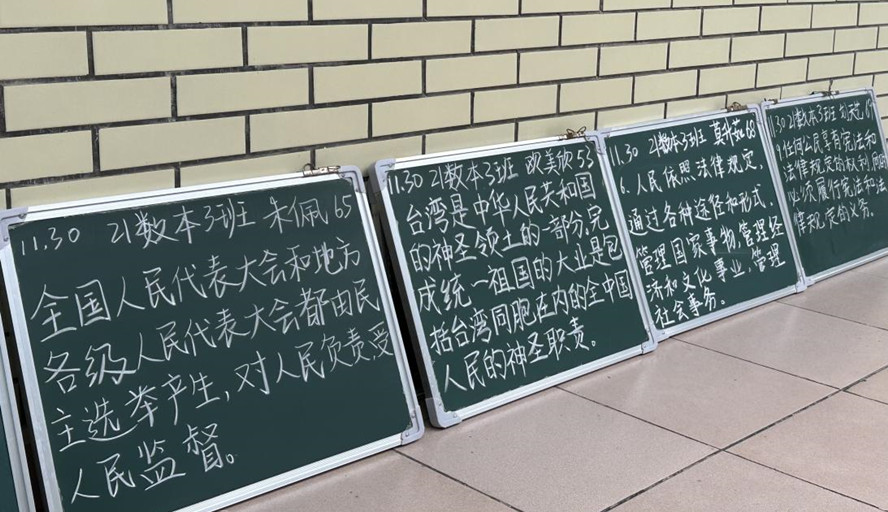 11.30 21数本3班 朱佩 65
全国人民代表大会和地方
各级人民代表大会都由民
主选举产生,对人民负责,受
人民监督。
11.30 21数本3班 欧美欣 53
台湾是中华人民共和国
的神圣领土的一部分,完
成统一祖国的大业是包
括台湾同胞在内的全中国
人民的神圣职责。
11.30 21数本3班 莫升茹 68
6、人民依照法律规定,
通过各种途径和形式,
管理国家事物,管理经
济和文化事业,管理
社会事务。
11.30 21数本3班
9.任何公民享有宪法和
法律规定的权利,同时
必须履行宪法和法
律规定的义务。